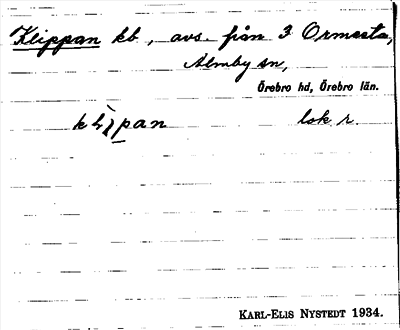 Klippan kb, avs. från 3 Ormesta,
Almby sn,
Örebro hd, Örebro län.
lok r.
KARL-ELIS NYSTEDT 1934.